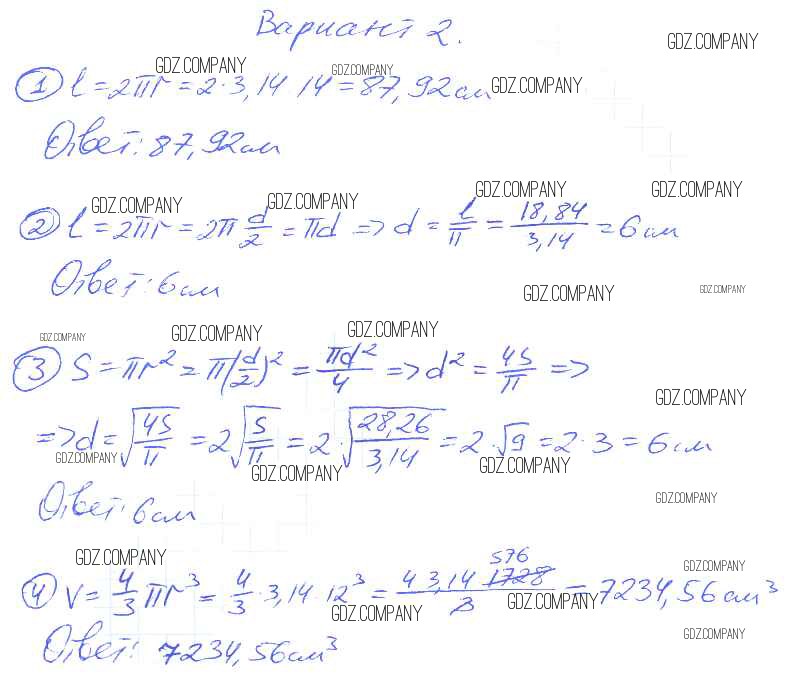 Вариант 2.
GDZ.COMPANY
GDZ.COMPANY GDZ.COMPANY
① l = 2πr = 2·3,14 14 = 87,92 см GDZ.COMPANY
Ответ: 87,92 см
GDZ.COMPANY GDZ.COMPANY GDZ.COMPANY GDZ.COMPANY
② l = 2πr = 2π d/2 = πd => d = l/π = 18,84/3,14 = 6 см
Ответ: 6 см
GDZ.COMPANY GDZ.COMPANY
GDZ.COMPANY GDZ.COMPANY GDZ.COMPANY
③ S = πr² = π(d/2)² = πd²/4 => d² = 4S/π =>
GDZ.COMPANY
=> d = √(4S/π) = 2√(S/π) = 2·√(28,26/3,14) = 2·√9 = 2·3 = 6 см
GDZ.COMPANY GDZ.COMPANY GDZ.COMPANY
Ответ: 6 см
GDZ.COMPANY
GDZ.COMPANY 576 GDZ.COMPANY
④ V = 4/3 πr³ = 4/3·3,14·12³ = 4 3,14 1728/3 = 7234,56 см³
GDZ.COMPANY GDZ.COMPANY
Ответ: 7234,56 см³
GDZ.COMPANY